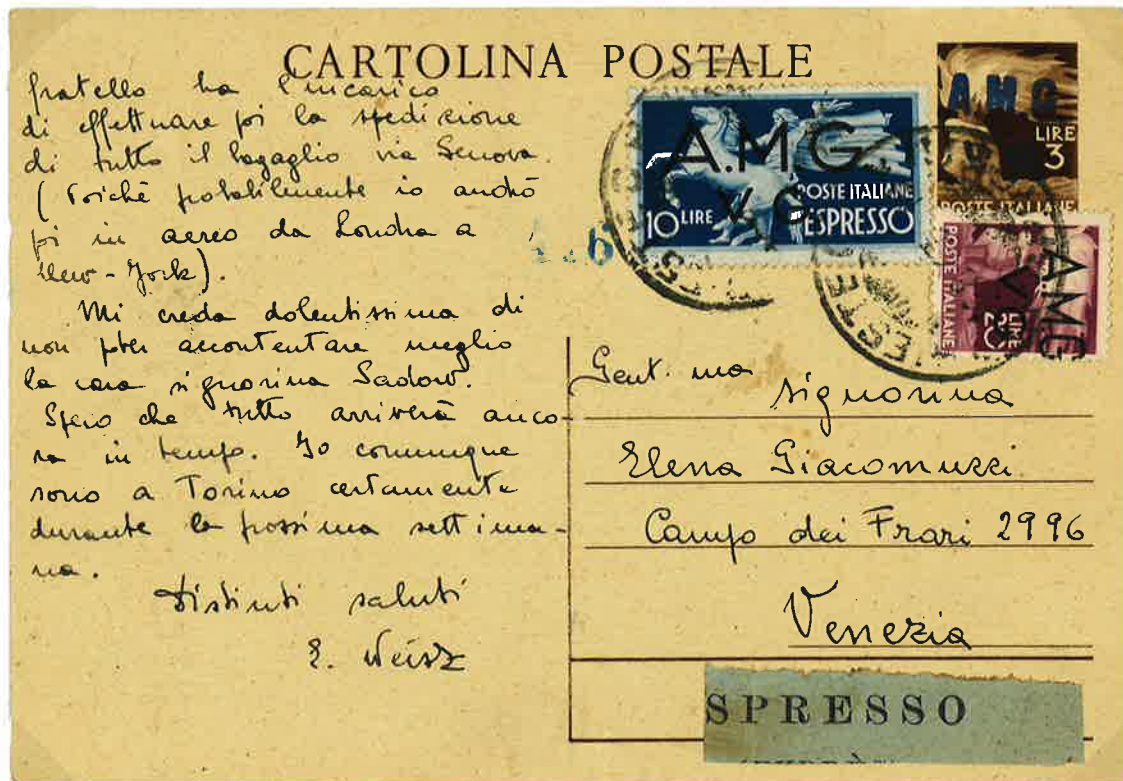 CARTOLINA POSTALE
fratello ha l'incarico
di effettuare poi la spedizione
di tutto il bagaglio via Genova.
(Poiché probabilmente io andrò
poi in aereo da Londra a
New-York).
Mi creda dolentissima di
non poter accontentare meglio
la cara signorina Sadow.
Spero che tutto arriverà anco-
ra in tempo. Io comunque
sono a Torino certamente
durante la prossima settima-
na.
Distinti saluti
E. Weisz
A.M.G.
V.G.
POSTE ITALIANE
10 LIRE ESPRESSO
AMG
LIRE
3
POSTE ITALIANE
AMG
V.
POSTE ITALIANE
LIRE
TRIESTE
Gent.ma
signorina
Elena Giacomuzzi
Campo dei Frari 2996
Venezia
SPRESSO